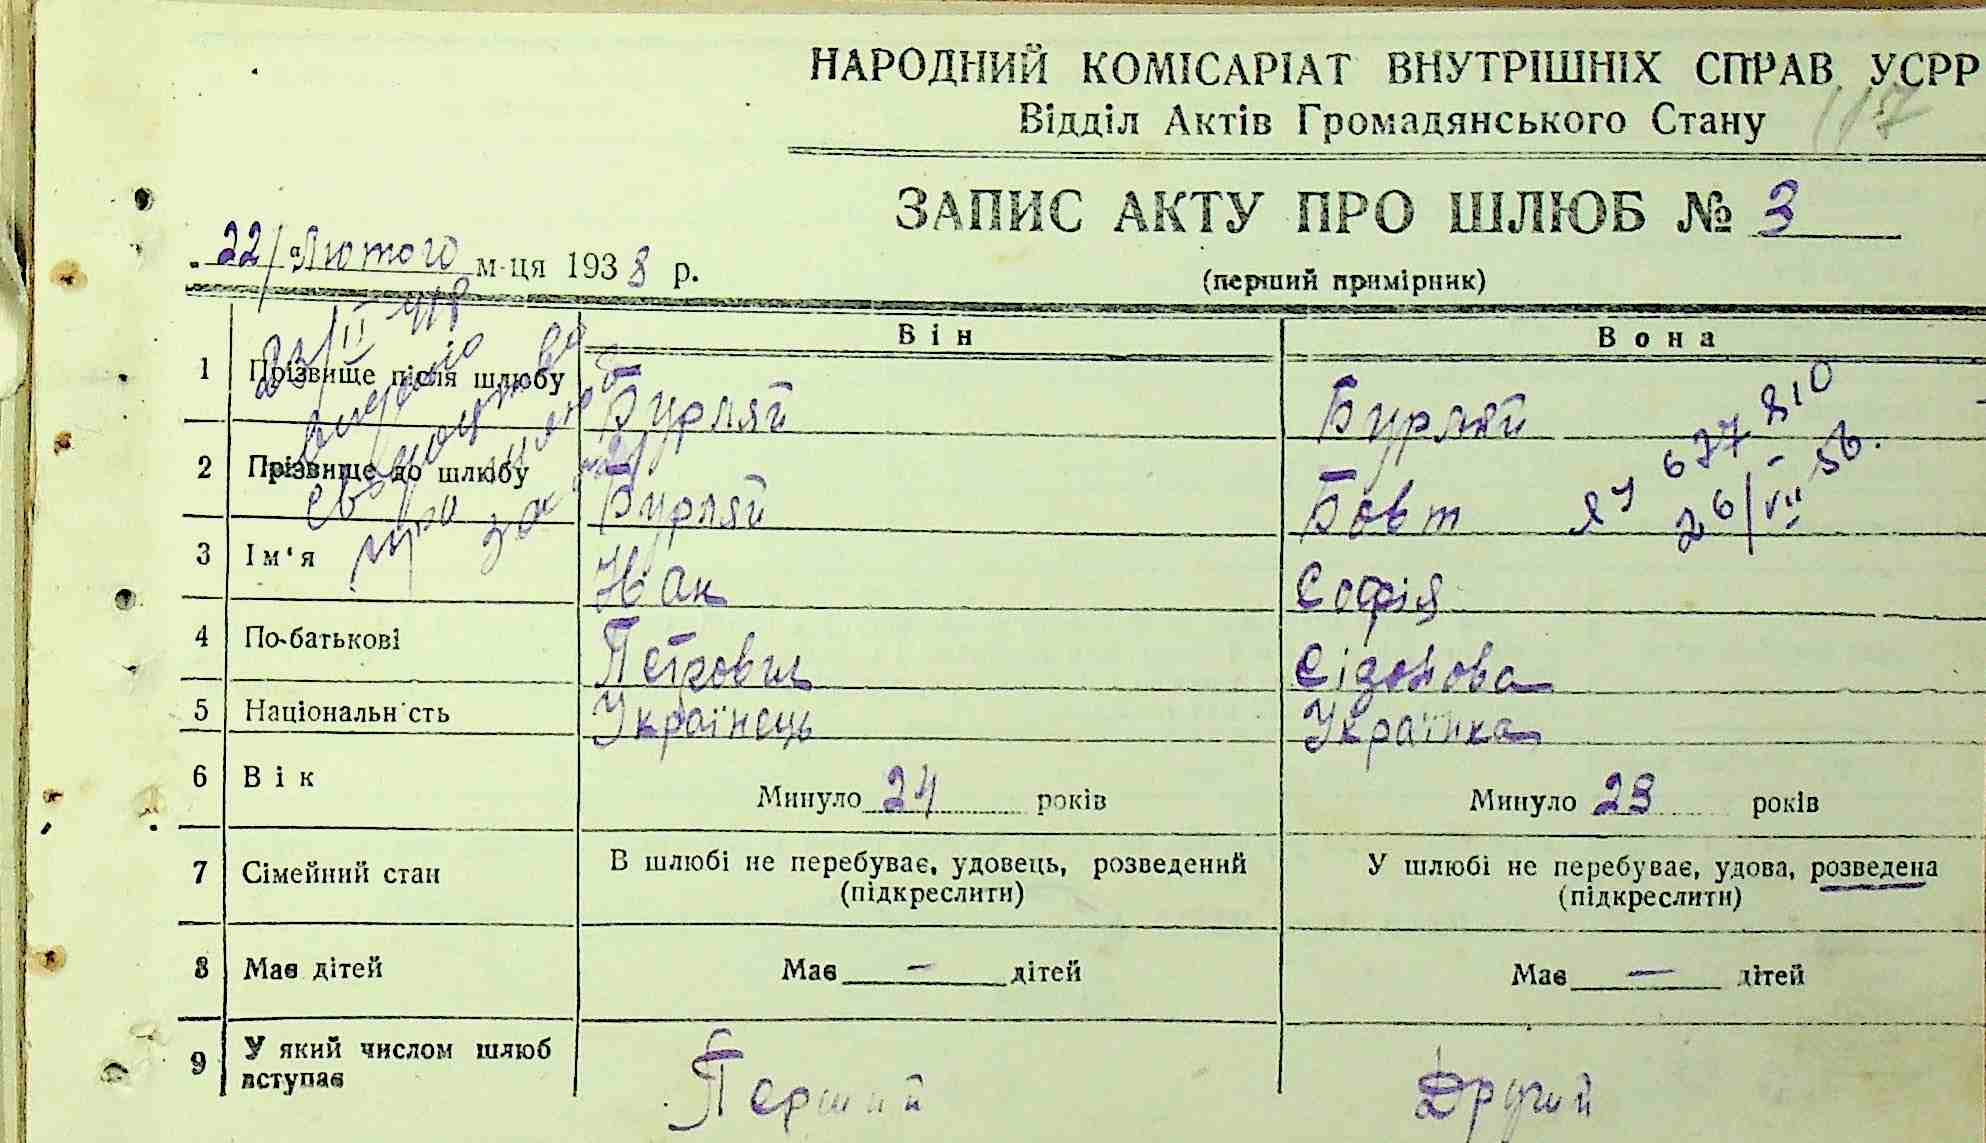 НАРОДНИЙ КОМІСАРІАТ ВНУТРІШНІХ СПРАВ УСРР
Відділ Актів Громадянського Стану
117
ЗАПИС АКТУ ПРО ШЛЮБ № 3
22/ Лютого м-ця 1938 р.
(перший примірник)
Він Вона
1 Прізвище після шлюбу Бурляй Бурляй
2 Прізвище до шлюбу Бурляй Бовт
677810
26/VII 56.
3 Ім'я Іван Софія
4 По-батькові Петрович Сідонова
5 Національність Українець Українка
6 Вік Минуло 24 років Минуло 23 років
7 Сімейний стан В шлюбі не перебуває, удовець, розведений У шлюбі не перебуває, удова, розведена
(підкреслити) (підкреслити)
8 Має дітей Має — дітей Має — дітей
9 У який числом шлюб вступає Перший Другий